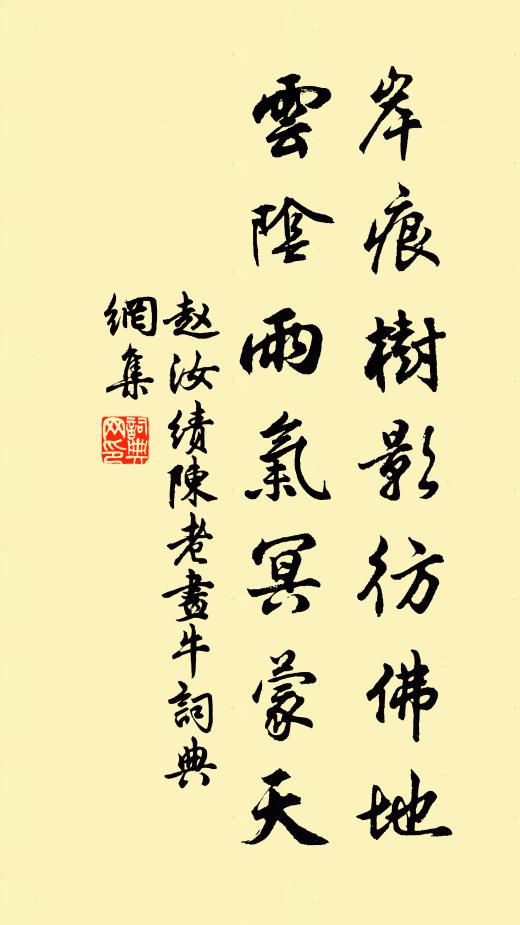 岸痕樹影彷佛地
雲陰雨氣冥蒙天
赵汝績陳老畫牛詞典
網集
詞典
网印